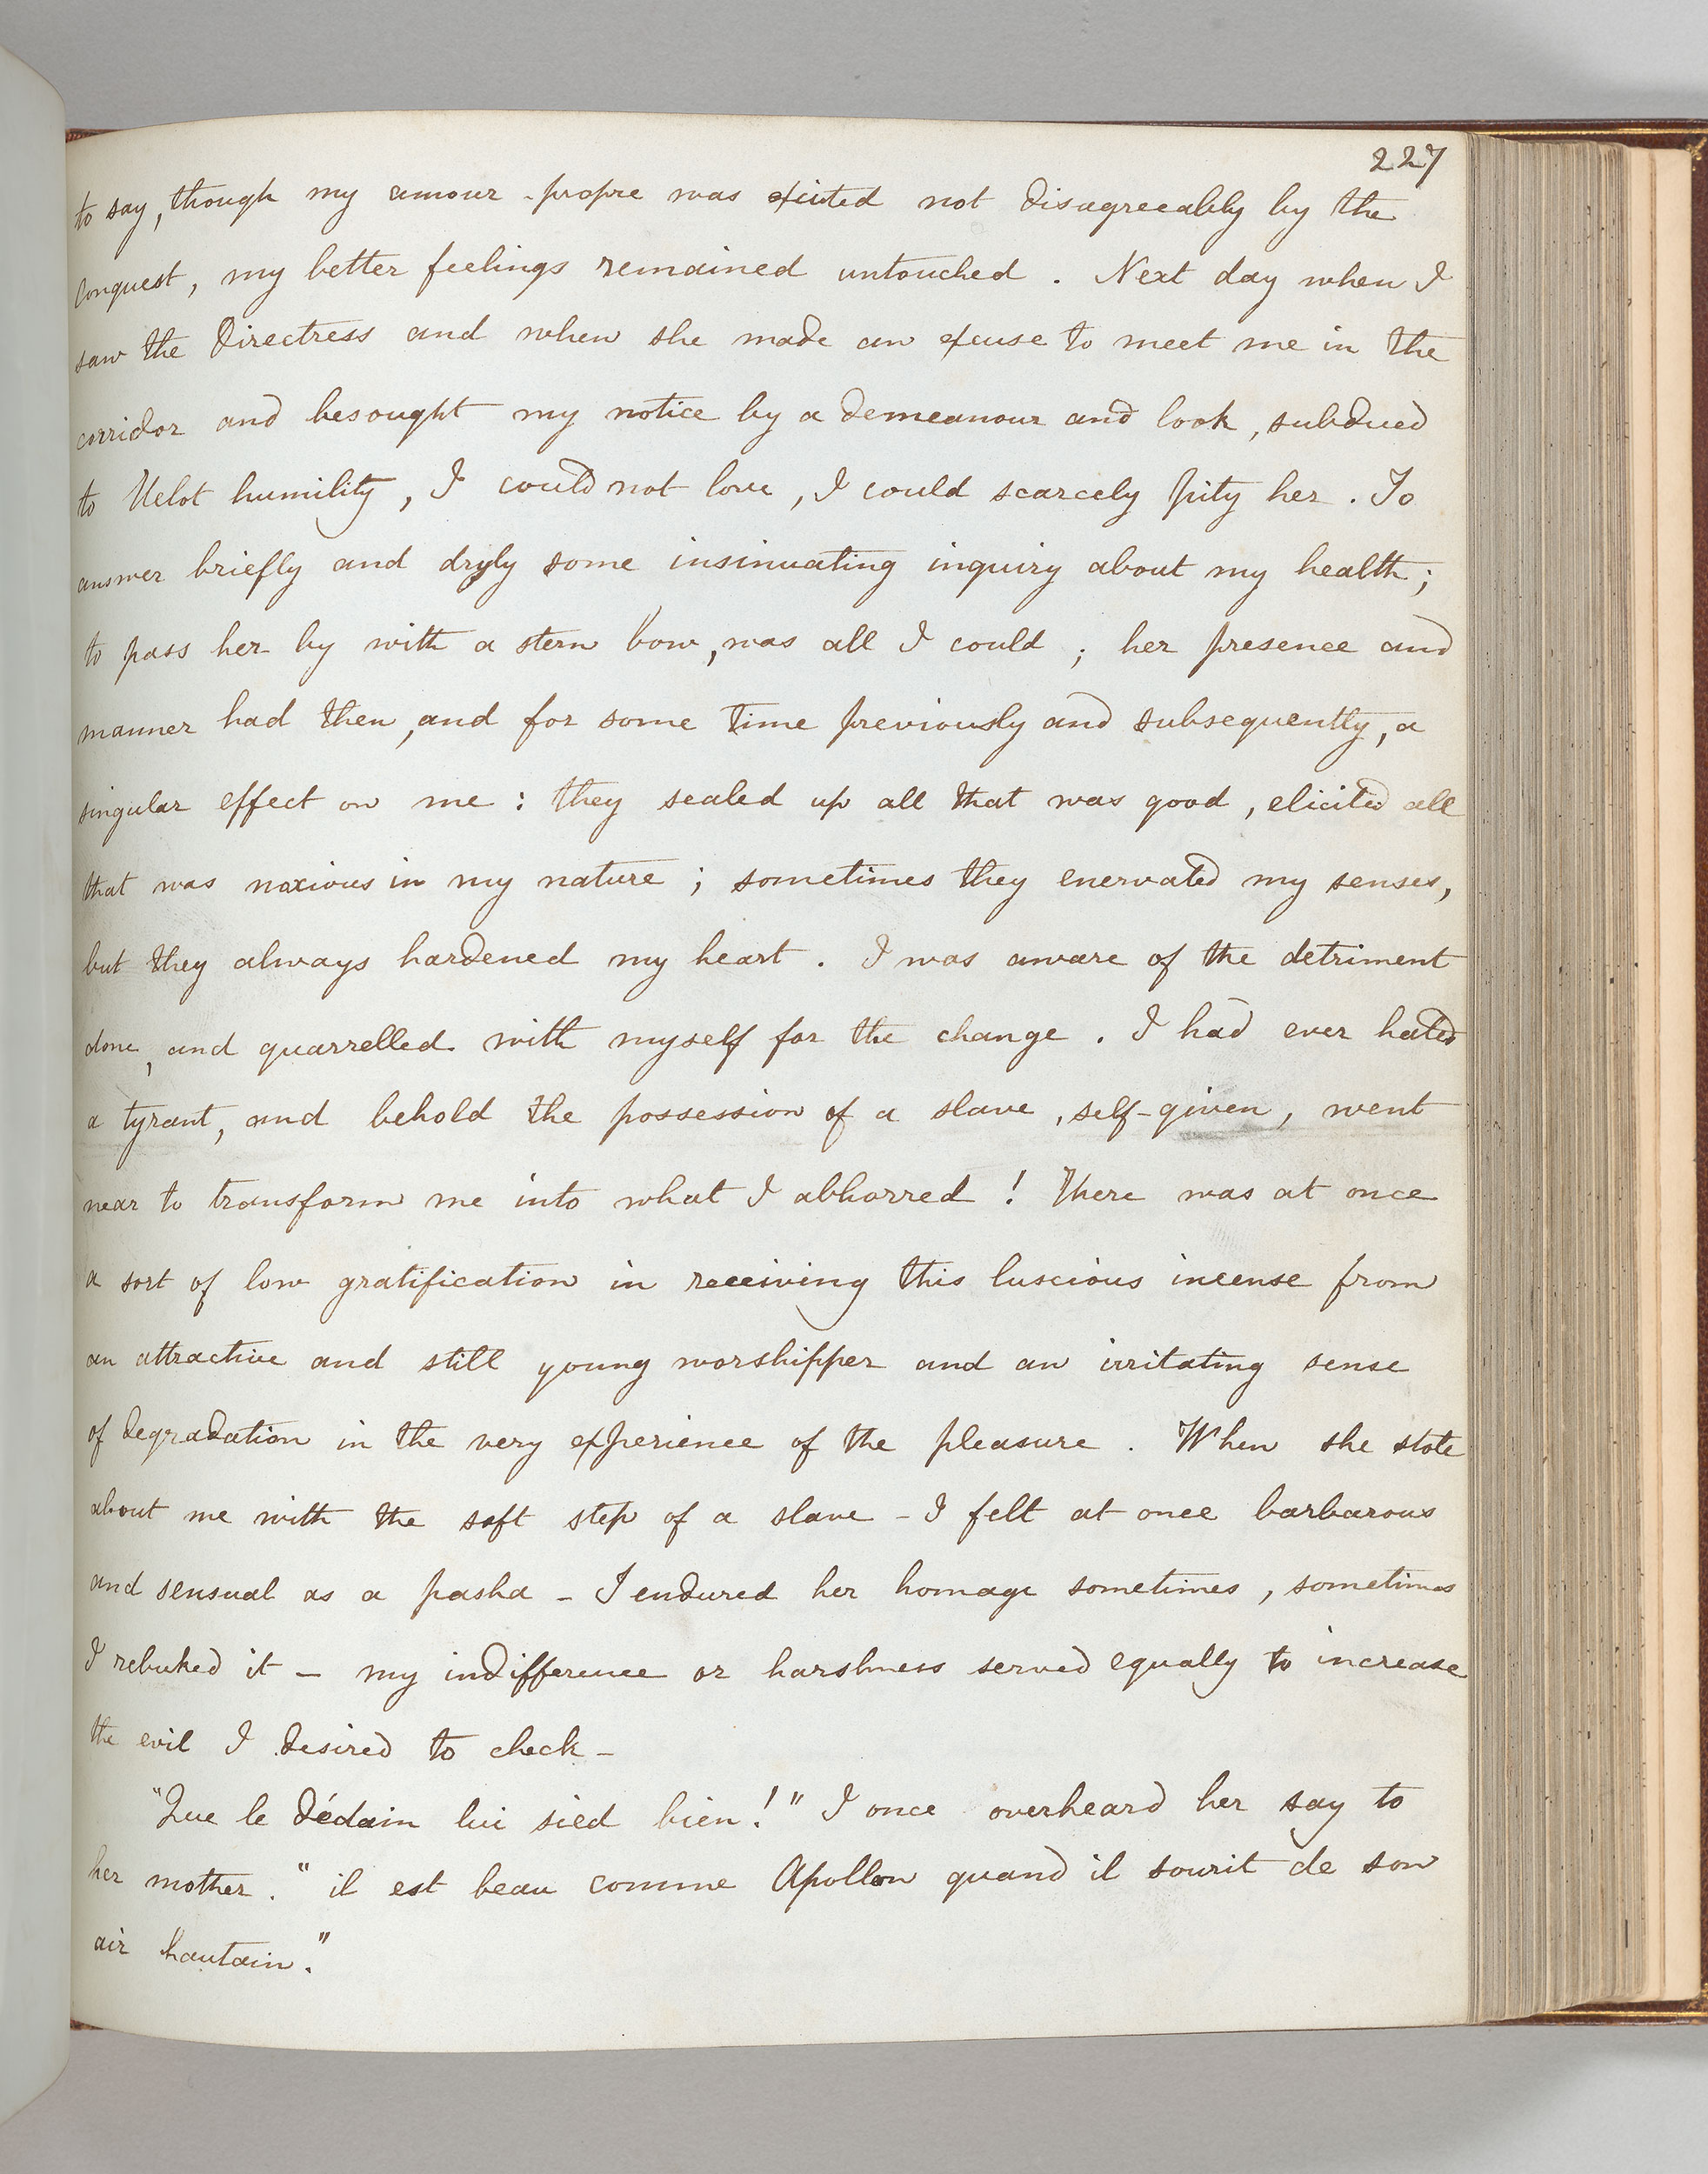 227
to say, though my amour-propre was excited not disagreeably by the
conquest, my better feelings remained untouched. Next day when I
saw the Directress and when she made an excuse to meet me in the
corridor and besought my notice by a demeanour and look, subdued
to Helot humility, I could not love, I could scarcely pity her. To
answer briefly and dryly some insinuating inquiry about my health;
to pass her by with a stern bow, was all I could; her presence and
manner had then, and for some time previously and subsequently, a
singular effect on me: they sealed up all that was good, elicited all
that was noxious in my nature; sometimes they enervated my senses,
but they always hardened my heart. I was aware of the detriment
done, and quarrelled with myself for the change. I had ever hated
a tyrant, and behold the possession of a slave, self-given, went
near to transform me into what I abhorred! There was at once
a sort of low gratification in receiving this luscious incense from
an attractive and still young worshipper and an irritating sense
of degradation in the very experience of the pleasure. When she stole
about me with the soft step of a slave - I felt at once barbarous
and sensual as a pasha - I endured her homage sometimes, sometimes
I rebuked it - my indifference or harshness served equally to increase
the evil I desired to check -
"Que le dédain lui sied bien!" I once overheard her say to
her mother. "il est beau comme Apollon quand il sourit de son
air hautain."